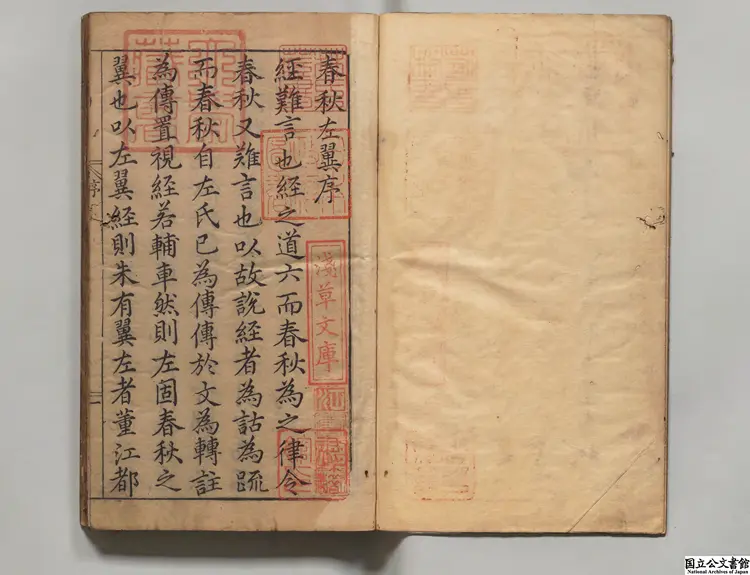 春秋左翼序
經難言也經之道六而春秋為之律令
春秋又難言也以故說經者為詁為䟽
而春秋自左氏已為傳傳於文為轉註
為傳置視經若輔車然則左固春秋之
翼也以左翼經則朱有翼左者董江都
序
淺草文庫
国立公文書館
National Archives of Japan